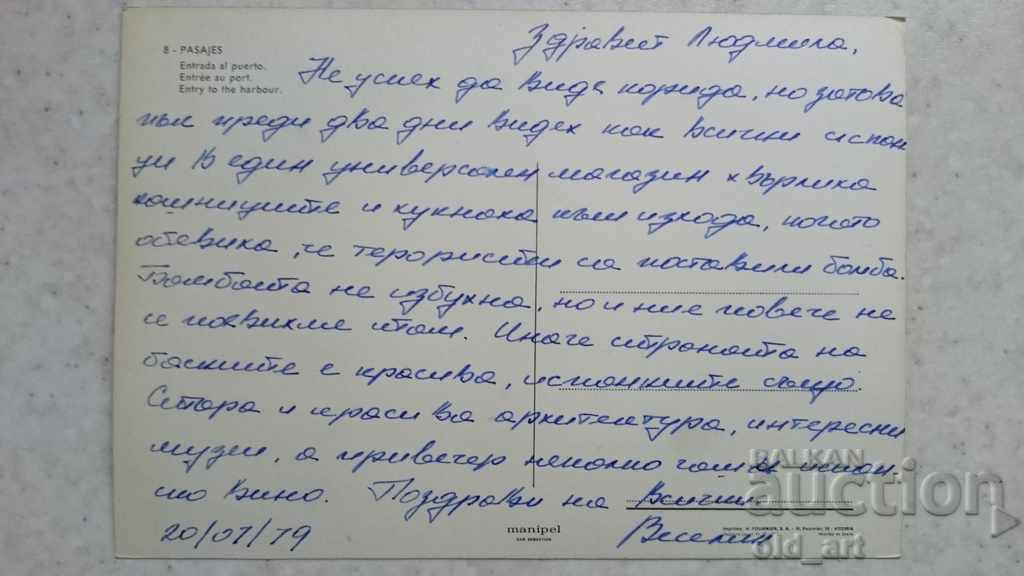 8 - PASAJES
Entrada al puerto.
Entrée au port.
Entry to the harbour.
Здравей Людмила,
Не успех да видя корида, но затова
пък преди два дни видех как всички испан
ци в един универсален магазин хвърлиха
кошниците и хукнаха към изхода, когато
обявиха, че терористи са поставили бомба.
Бомбата не избухна, но и ние повече не
се появихме там. Иначе страната на
баските е красива, испанките също.
Стара и красива архитектура, интересни
музеи, а привечер няколко чаши испан
ско вино. Поздрави на всички.
20/07/79
Веселин
manipel
SAN SEBASTIAN
BALKAN
auction
old_art